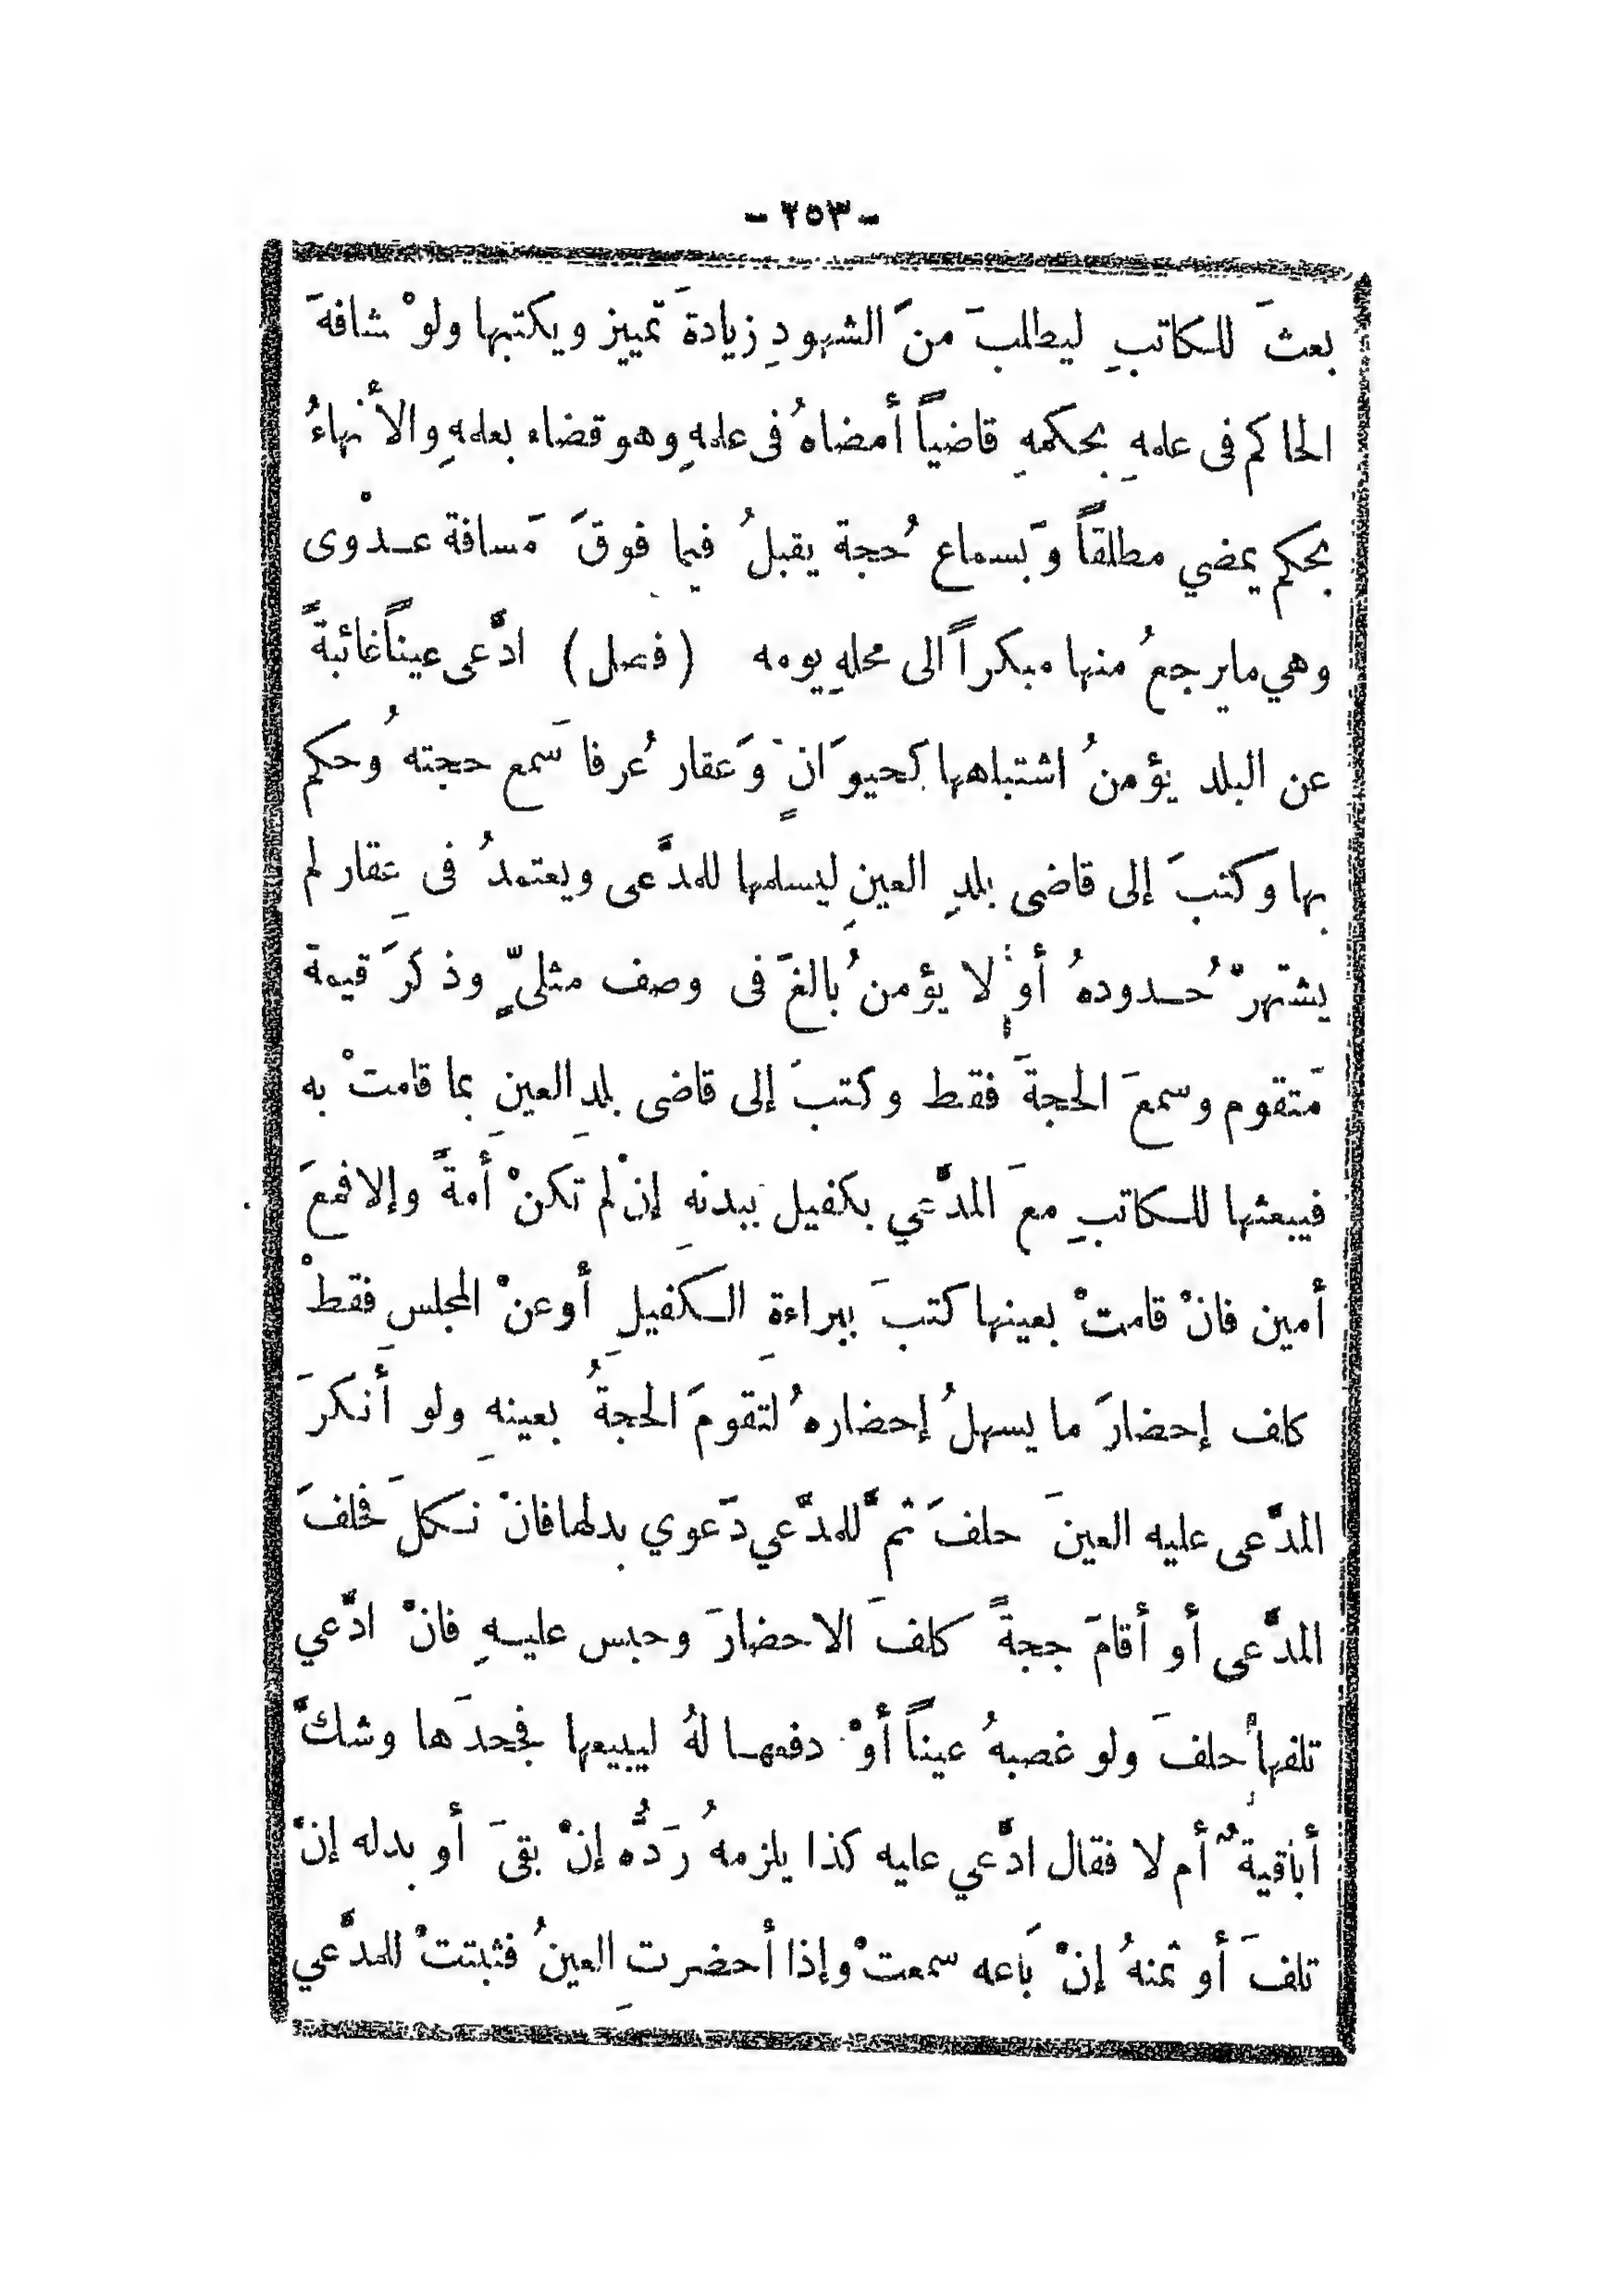 - ٢٥٣ -
بعثَ للكاتبِ ليطلبَ منَ الشهودِ زيادةَ تمييز ويكتبها ولوْ شافهَ
الحاكم فى عملهِ بحكمهِ قاضياً أمضاهُ فى عملهِ وهو قضاء بعلمهِ والأنهاءُ
بحكم يمضي مطلقاً وَبسماع حُجة يقبلُ فيما فوقَ مَسافة عـدْوى
وهي مايرجعُ منها مبكراً الى محلهِ يومه (فصل) ادَّعى عيناً غائبةً
عن البلد يؤمنُ اشتباهها كحيوَانٍ وَعقار عُرفا سَمع حجتهُ وحكم
بها وكتبَ إلى قاضى بلدِ العينِ ليسلمها للمدَّعى ويعتمدُ فى عِقار لم
يشتهرْ حُـدودهُ أو لا يؤمنُ بالغَ فى وصف مثلىٍّ وذكرَ قيمة
مَتقوم وسمعَ الحجةَ فقط وكتبَ إلى قاضى بلدِ العينِ بما قامتْ به
فيبعثها للـكاتبِ معَ المدَّعي بكفيل ببدنهِ إنْ لم تكنْ أمةً وإلا فمعَ
أمين فانْ قامتْ بعينها كتبَ ببراءةِ الـكفيلِ أو عنْ المجلسِ فقطْ
كلف إحضارَ ما يسهلُ إحضارهُ لتقومَ الحجةُ بعينهِ ولو أنكرَ
المدَّعى عليه العينَ حلفَ ثمَّ للمدَّعي دَعوي بدلها فانْ نـكلَ فحلفَ
المدَّعى أو أقامَ حجةً كلفَ الاحضارَ وحبس عليـهِ فانْ ادَّعي
تلفها حلفَ ولو غصبهُ عيناً أوْ دفعهـا لهُ ليبيعها فجحدَها وشكَّ
أباقيةٌ أم لا فقال ادَّعي عليه كذا يلزمهُ رَدُّه إنْ بقىَ أو بدله إنْ
تلفَ أو ثمنهُ إنْ بَاعه سمعتْ وإذا أحضرتِ العينُ فثبتتْ للمدَّعي